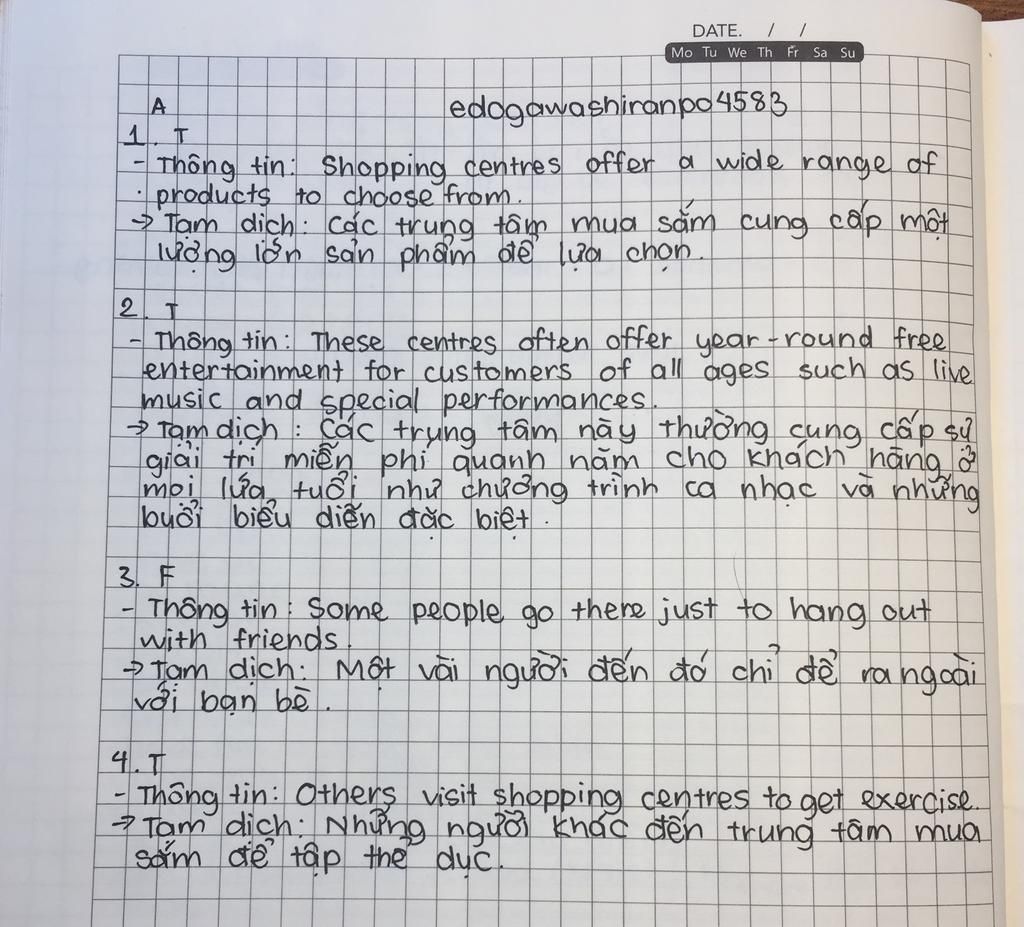 DATE. / /
Mo Tu We Th Fr Sa Su
A edogawashiranpo4583
1. T
- Thông tin: Shopping centres offer a wide range of
products to choose from.
→ Tạm dịch: Các trung tâm mua sắm cung cấp một
lượng lớn sản phẩm để lựa chọn.
2. T
- Thông tin: These centres often offer year-round free
entertainment for customers of all ages such as live
music and special performances.
→ Tạm dịch: Các trung tâm này thường cung cấp sự
giải trí miễn phí quanh năm cho khách hàng ở
mọi lứa tuổi như chương trình ca nhạc và những
buổi biểu diễn đặc biệt.
3. F
- Thông tin: Some people go there just to hang out
with friends.
→ Tạm dịch: Một vài người đến đó chỉ để ra ngoài
với bạn bè.
4. T
- Thông tin: Others visit shopping centres to get exercise.
→ Tạm dịch: Những người khác đến trung tâm mua
sắm để tập thể dục.